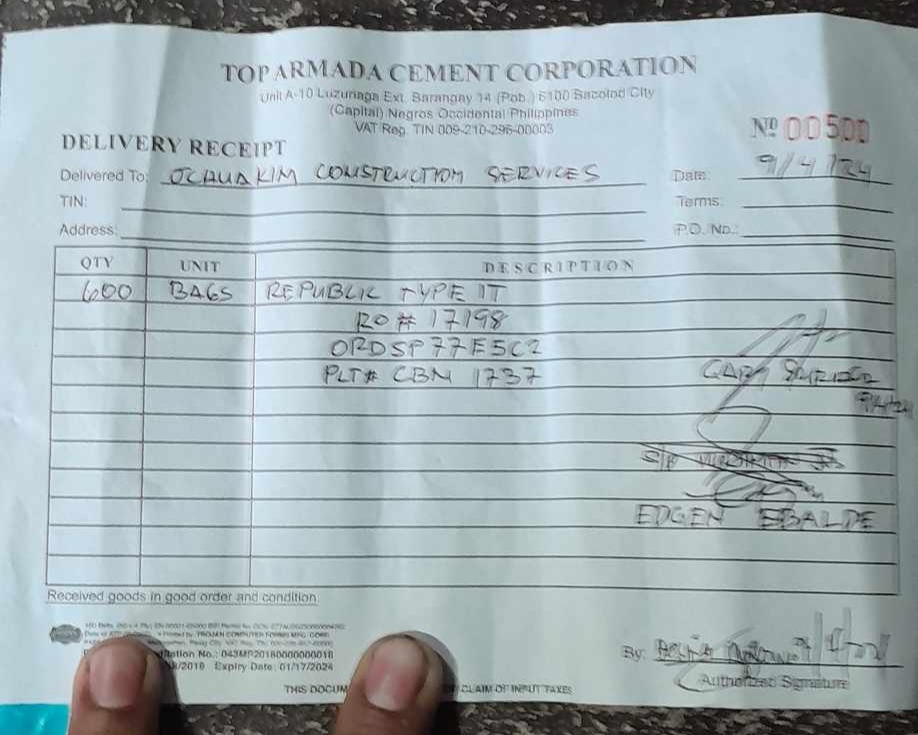 TOP ARMADA CEMENT CORPORATION
Unit A-10 Luzuriaga Ext. Barangay 14 (Pob.) 6100 Bacolod City
(Capital) Negros Occidental Philippines
VAT Reg. TIN 009-210-296-00003
Nº 00500
DELIVERY RECEIPT
Delivered To: JCHUAKIM CONSTRUCTION SERVICES Date: 9/4/24
TIN: Terms:
Address: P.O. No.:
QTY UNIT DESCRIPTION
600 BAGS REPUBLIC TYPE IT
RO # 17198
ORDSP77E5C2
PLT# CBM 1737
GARY
EDGEN EBALDE
Received goods in good order and condition.
TROJAN COMPUTER FORMS MFG. CORP.
No.: 043MP20180000000018
/2018 Expiry Date: 01/17/2024
By:
Authorized Signature
THIS DOCUM CLAIM OF INPUT TAXES